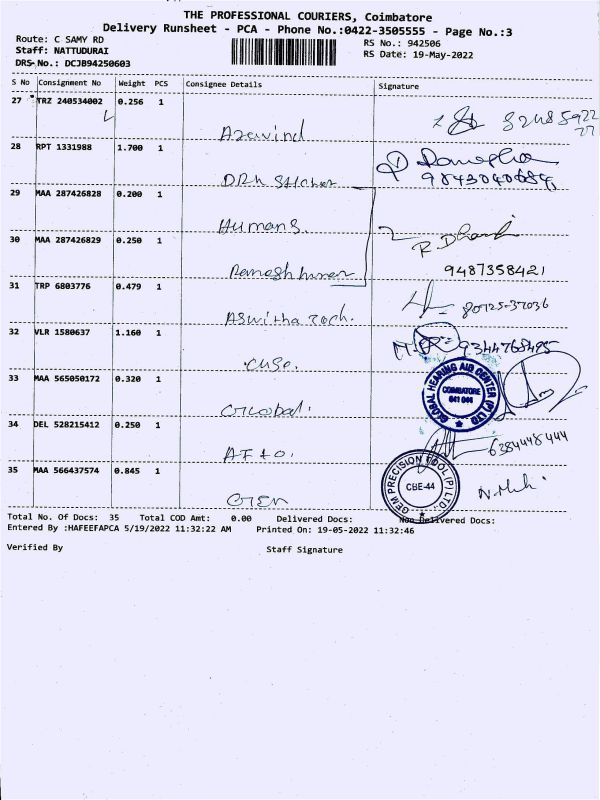 THE PROFESSIONAL COURIERS, Coimbatore
Delivery Runsheet - PCA - Phone No.:0422-3505555 - Page No.:3
Route: C SAMY RD
RS No.: 942506
Staff: NATTUDURAI
RS Date: 19-May-2022
DRS No.: DCJB94250603
S No Consignment No Weight PCS Consignee Details Signature
27 TRZ 240534002 0.256 1
Aravind
28 RPT 1331988 1.700 1
9843040684
29 MAA 287426828 0.200 1
Humans.
30 MAA 287426829 0.250 1
R. Dhandi
Ramesh kumar
9487358421
31 TRP 6803776 0.479 1
80725-37036
Aswitha Tech.
32 VLR 1580637 1.160 1
9344768495
33 MAA 565050172 0.320 1
GLOBAL HEARING AID CENTER (P) LTD
COIMBATORE
641 044
Global.
34 DEL 528215412 0.250 1
6384448444
35 MAA 566437574 0.845 1
GEM PRECISION TOOL (P) LTD.
CBE-44
Gem
Total No. Of Docs: 35 Total COD Amt: 0.00 Delivered Docs: Non Delivered Docs:
Entered By :HAFEEFAPCA 5/19/2022 11:32:22 AM Printed On: 19-05-2022 11:32:46
Verified By Staff Signature